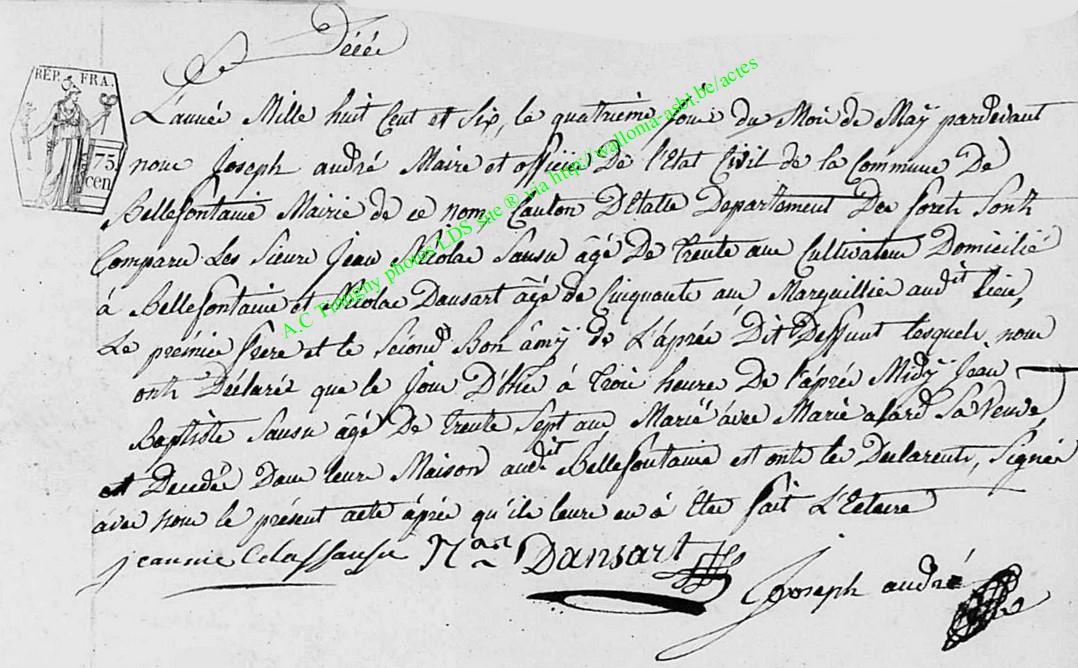 Décé
RÉP. FRA.
75 cen
L'année Mille huit Cent et Six, le quatrieme jour du Mois de Maÿ pardevant
nous Joseph andré Maire et officier De l'Etat Civil de la Commune De
Bellefontaine Mairie de ce nom, Canton D'Etalle Departement Des forets Sont
Comparu Les Sieurs Jean Nicolas Sansu âgé De trente ans Cultivateur Domicilié
à Bellefontaine et Nicolas Dansart âgé de Cinquante ans Marguillier audit lieu,
Le prémier frere et le Second Bon âmÿ de L'âprés Dit Deffunt lesquels nous
ont Déclaré que le Jour D'hier à trois heures De l'âprés Midÿ Jean
Baptiste Sansu âgé De trente Sept ans Marié avec Marie alard Sa Veuve,
est Decedé Dans leurs Maison audit Bellefontaine et ont les Declarents, Signés
avec nous le présent acte âprés qu'ils leurs en à Eter fait L'Ecture
jean nicolas sansu Nas Dansart Joseph andré
A.C Tintigny photos LDS site ® via http://wallonia-asbl.be/actes